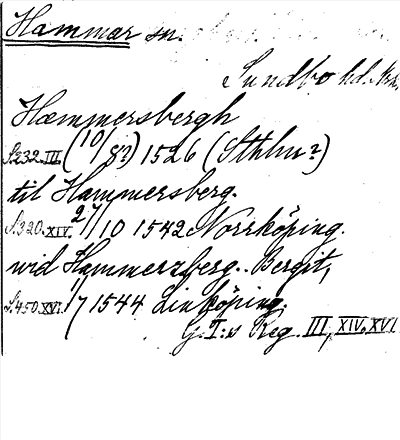 Hammar sn.
Sundbo hd. Nk.
Hæmmersbergh
S.232.III. (10/8?) 1526 (Sthlm?)
til Hammersberg.
S.320.XIV. 27/10 1542 Norrköping.
wid Hammerzberg. Bergit,
S.450.XVI. 1/7 1544 Linköping.
G. I:s Reg. III, XIV. XVI